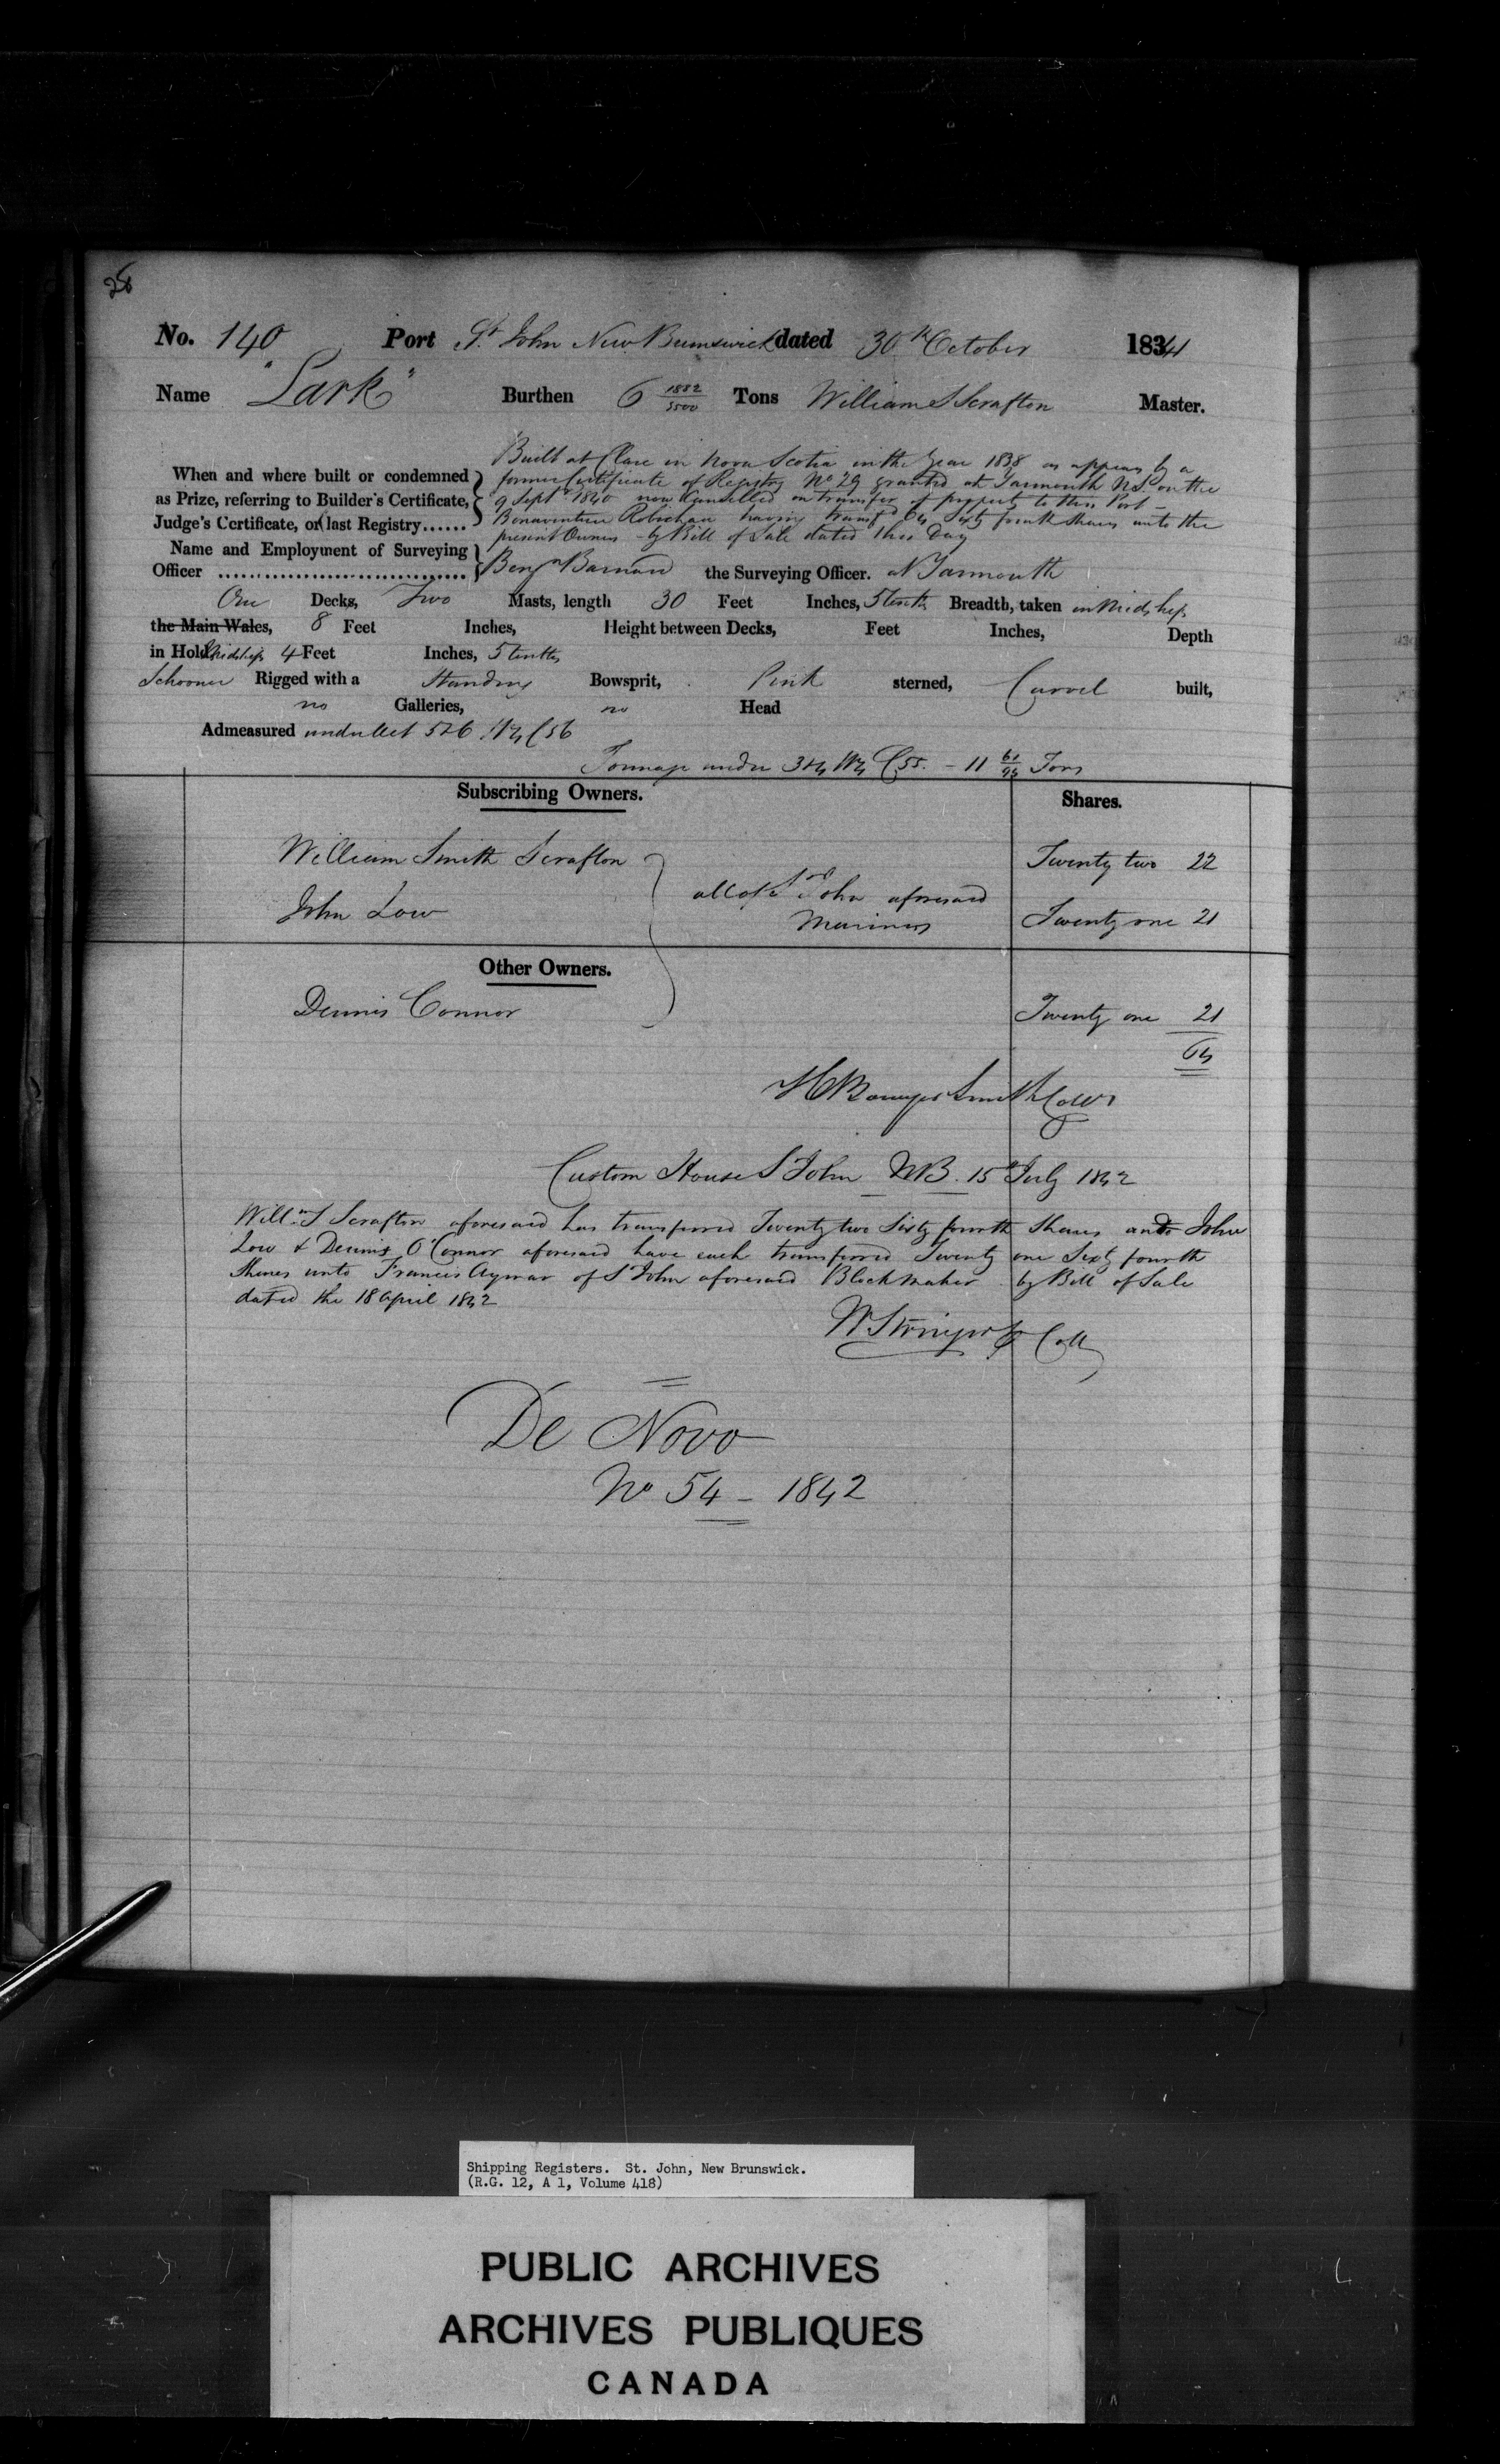 No. 140 Port St. John New Brunswick dated 30th October 1841
Name "Lark" Burthen 6 1882/3500 Tons William S Scrafton Master.
Built at Clare in Nova Scotia in the Year 1838 as appears by a
When and where built or condemned former Certificate of Registry No 29 granted at Yarmouth NS. on the
as Prize, referring to Builder's Certificate, 9 Septr 1840 now Cancelled on transfer of property to this Port -
Judge's Certificate, or last Registry...... Bonaventure Robichau having transfd 64 Sixty fourth shares unto the
present Owners - by Bill of Sale dated this Day
Name and Employment of Surveying
Officer Benjn Barnard the Surveying Officer. at Yarmouth
One Decks, Two Masts, length 30 Feet Inches, 5 tenths Breadth, taken in Midships
the Main Wales, 8 Feet Inches, Height between Decks, Feet Inches, Depth
in Hold Midships 4 Feet Inches, 5 tenths
Schooner Rigged with a Standing Bowsprit, Pink sterned, Carvel built,
no Galleries, no Head
Admeasured under Act 5 & 6 Wm 4 C 56
Tonnage under 3 & 4 Wm 4 C 55. - 11 61/94 Tons
Subscribing Owners. Shares.
William Smith Scrafton Twenty two 22
all of St John aforesaid
John Low Mariners Twenty one 21
Other Owners.
Dennis Connor Twenty one 21
64
H Bowyer Smith Collr
Custom House St John NB. 15th July 1842
Willm S Scrafton aforesaid has transferred Twenty two Sixty fourth Shares and John
Low & Dennis O'Connor aforesaid have each transferred Twenty one Sixty fourth
Shares unto Francis Aymar of St John aforesaid Block maker by Bill of Sale
dated the 18 April 1842
Coll
De Novo
No 54 - 1842
Shipping Registers. St. John, New Brunswick.
(R.G. 12, A 1, Volume 418)
PUBLIC ARCHIVES
ARCHIVES PUBLIQUES
CANADA